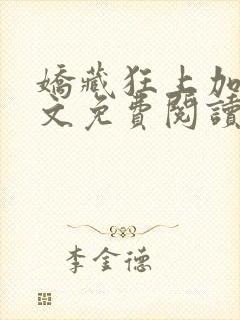 嬌藏狂上加
文免費閱讀
李金德